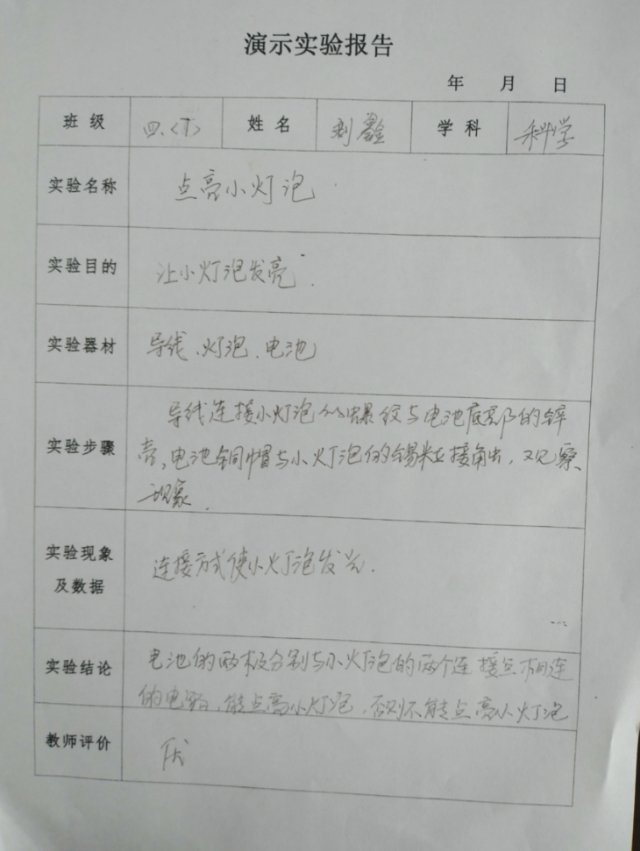 演示实验报告
年 月 日
班 级 四.<下> 姓 名 刘 学 科 科学
实验名称 点亮小灯泡
实验目的 让小灯泡发亮.
实验器材 导线、灯泡、电池
导线连接小灯泡的螺纹与电池底部的锌
实验步骤 壳,电池铜帽与小灯泡的锡粒接触,观察
现象.
实验现象 连接方式使小灯泡发光.
及数据
实验结论 电池的两极分别与小灯泡的两个连接点相连
的电路,能点亮小灯泡,否则不能点亮小灯泡
教师评价